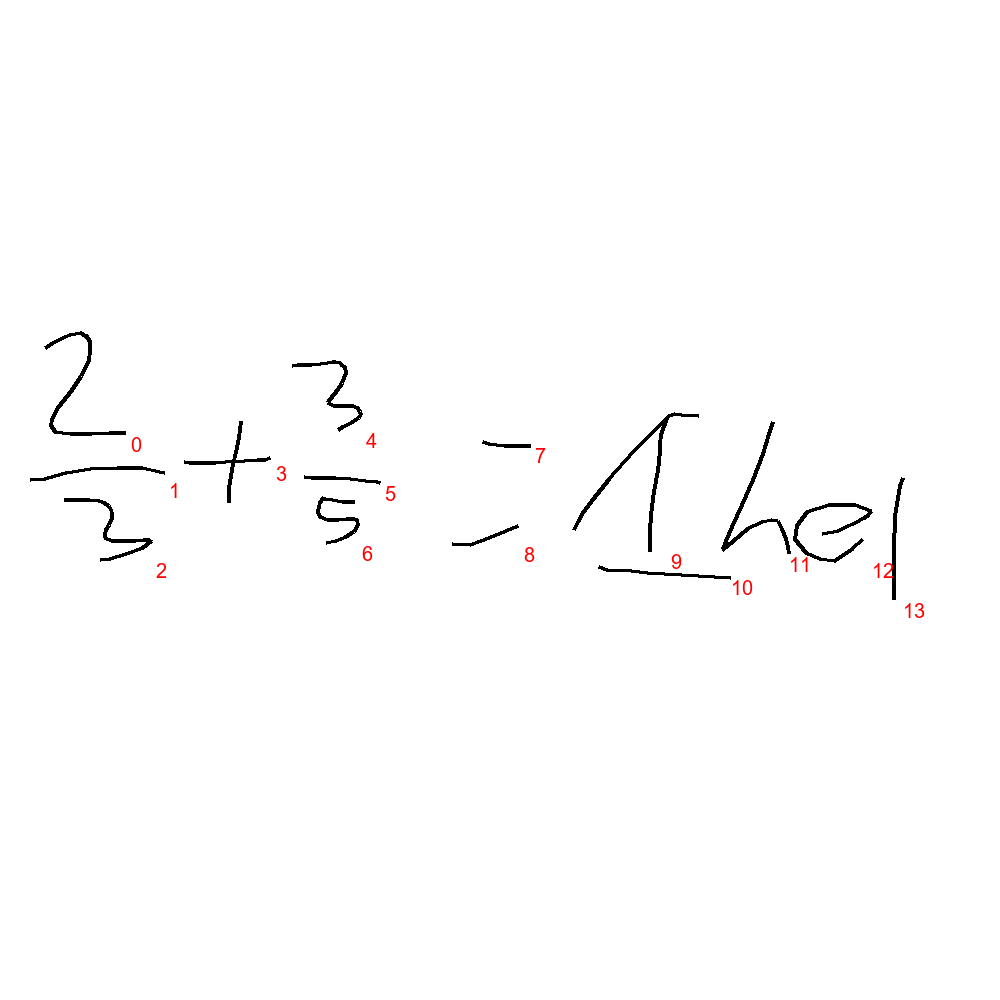 2/3 + 3/5 = 1 hel
0 1 2 3 4 5 6 7 8 9 10 11 12 13